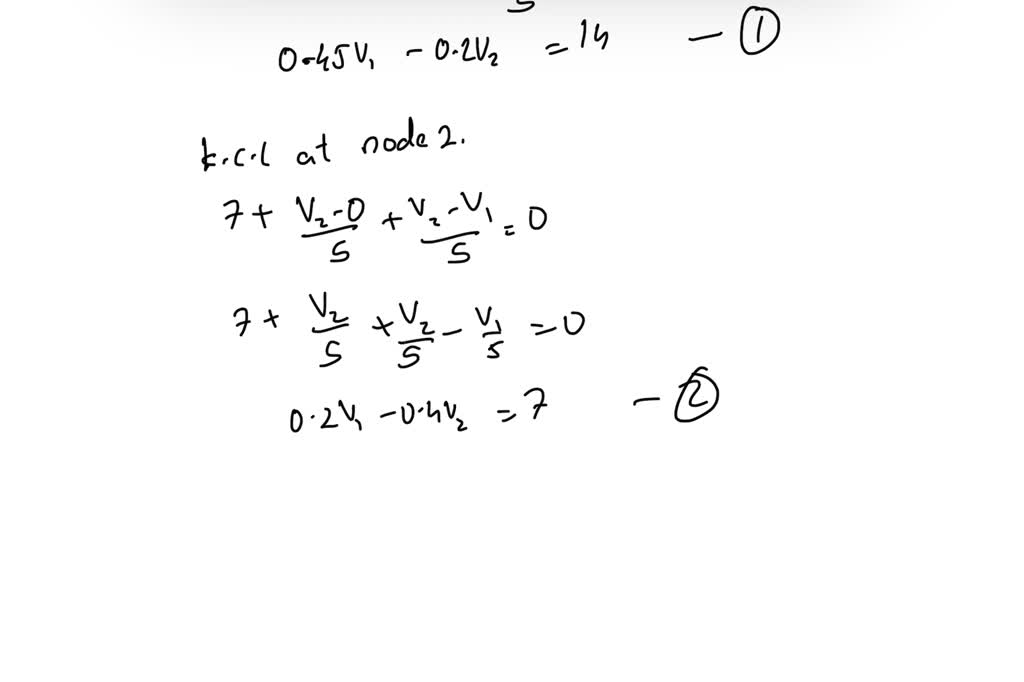 0.45V₁ - 0.2V₂ = 14 - ①
k.c.l at node 2.
7 + (V₂-0)/5 + (V₂-V₁)/5 = 0
7 + V₂/5 + V₂/5 - V₁/5 = 0
0.2V₁ - 0.4V₂ = 7 - ②